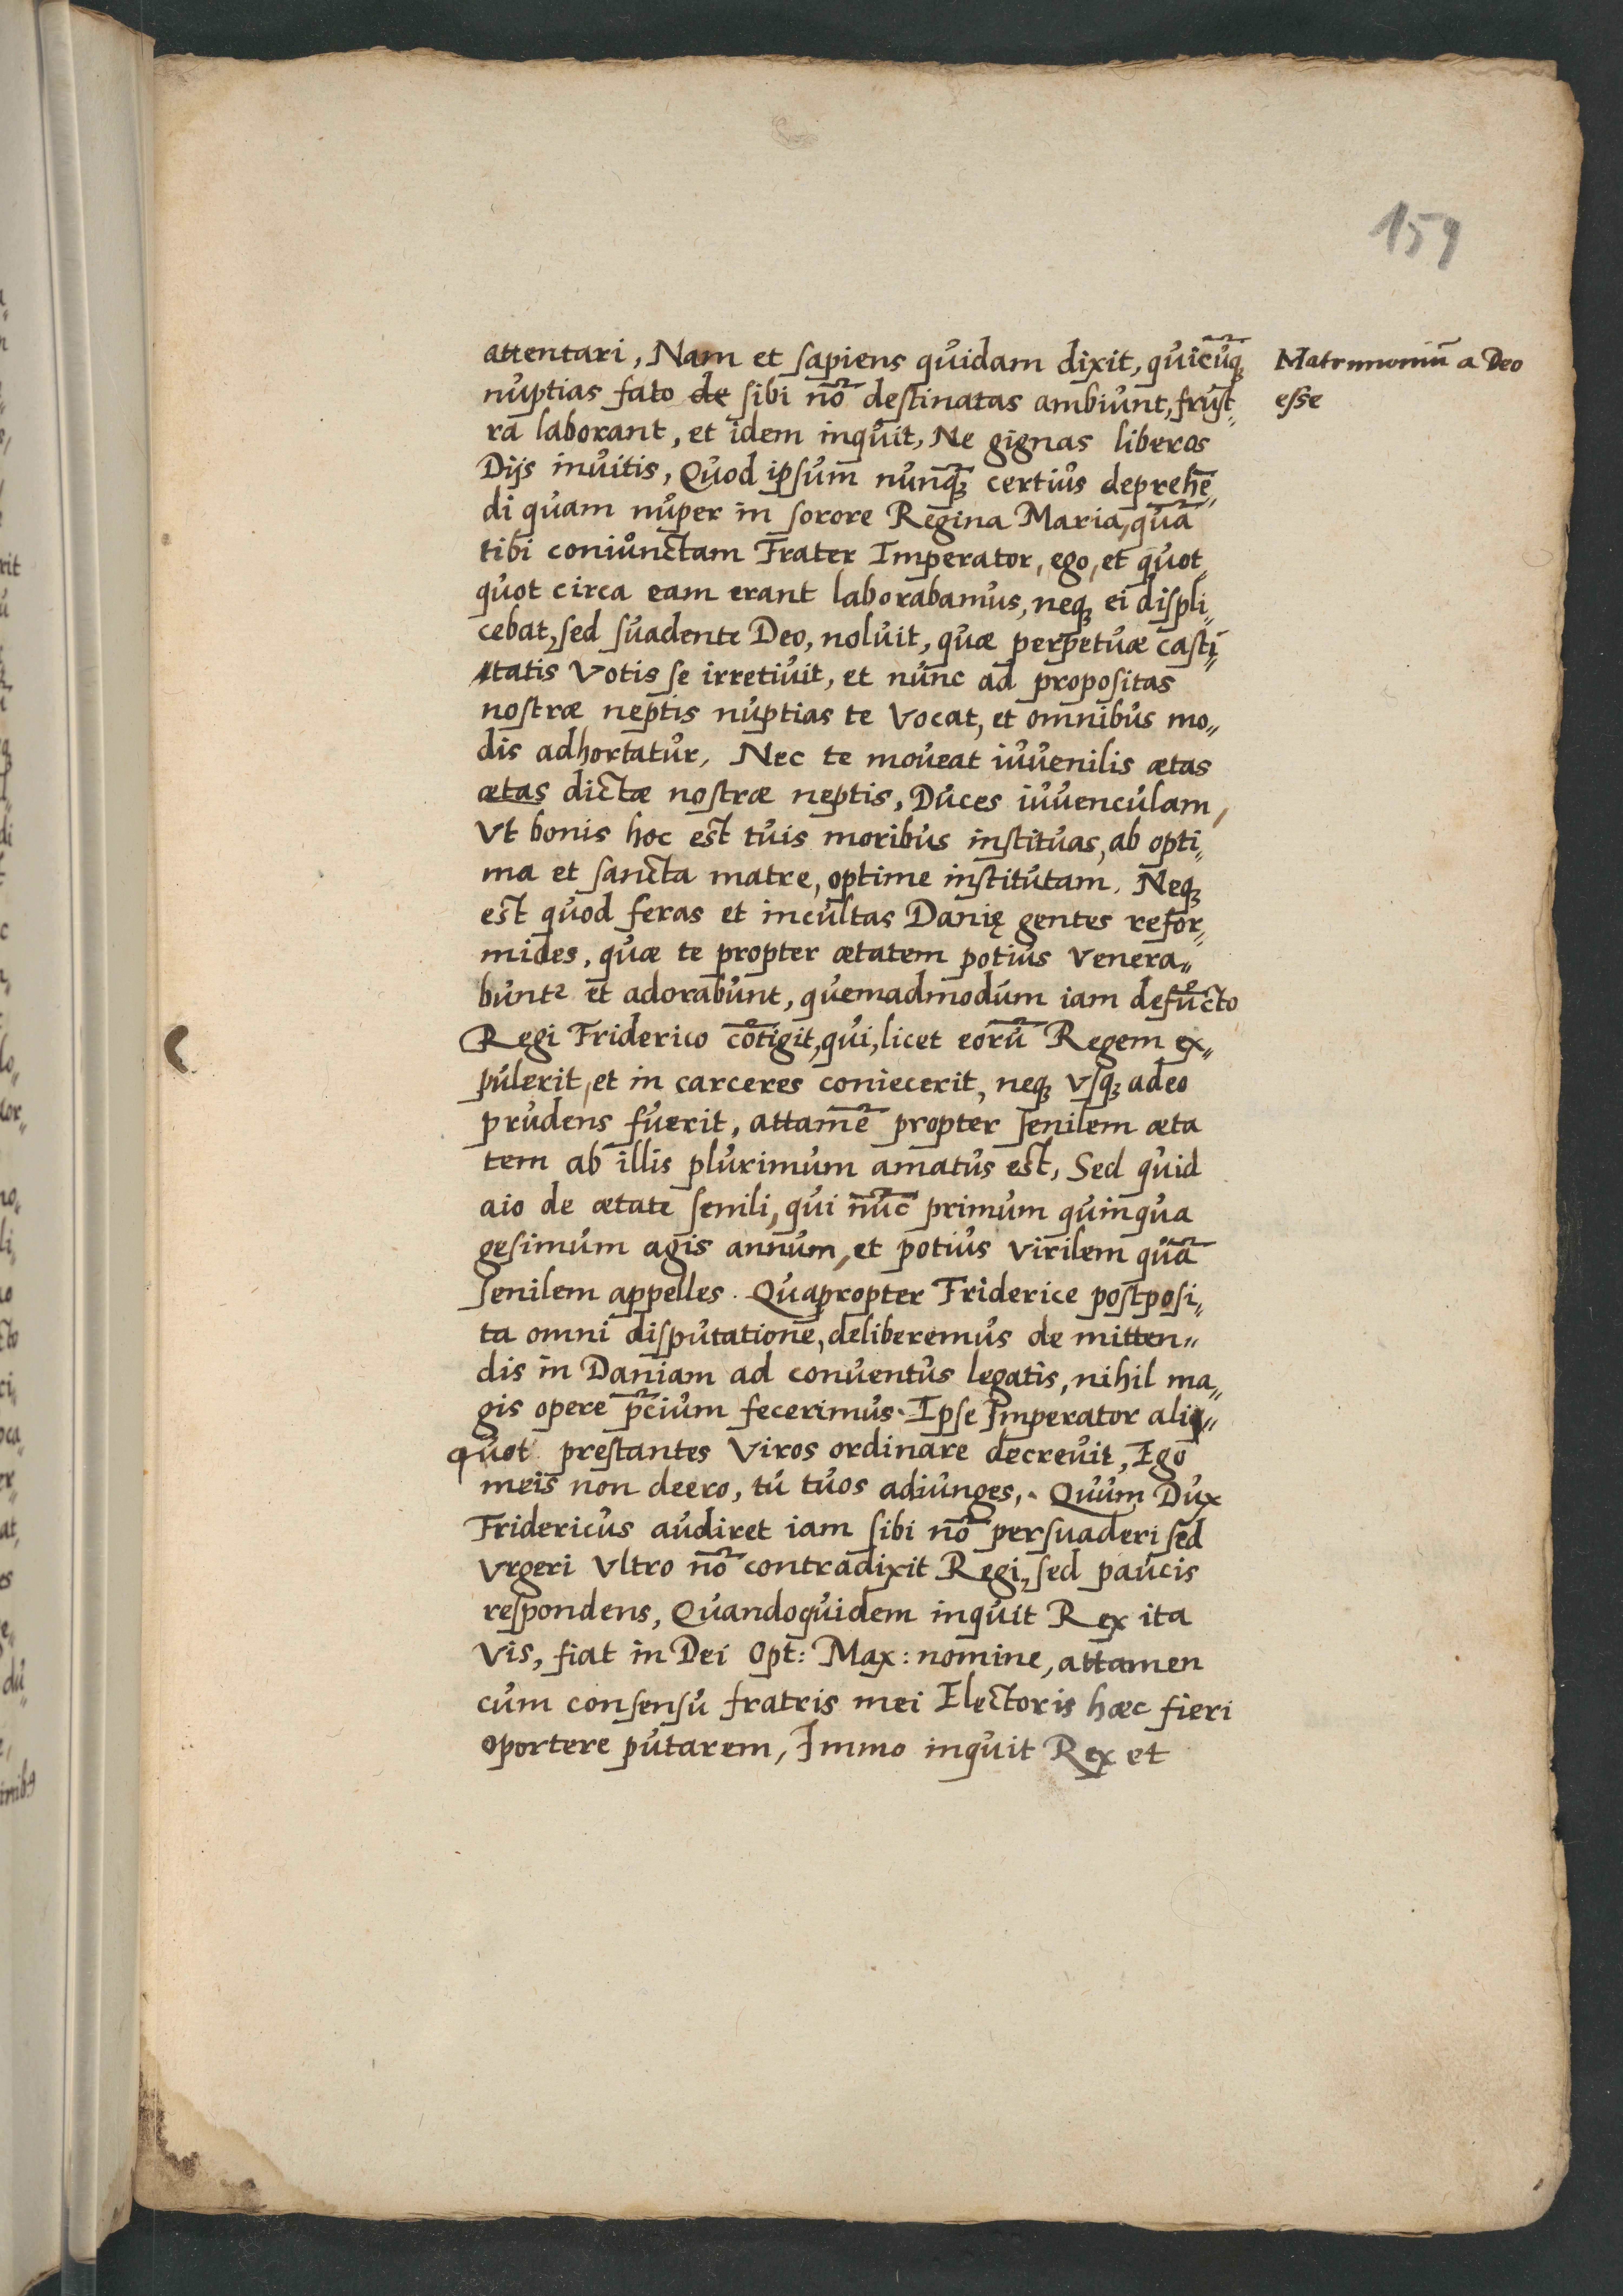 159
attentari, Nam et sapiens quidam dixit, quicūq̃ꝫ
nuptias fato de sibi nõ destinatas ambiunt, frust„
ra laborant, et idem inquit, Ne gignas liberos
Dijs inuitis, Quod ipsum nunq̃ꝫ certius deprehē„
di quam nuper in sorore Regina Maria, quã
tibi coniunctam Frater Imperator, ego, et quot„
quot circa eam erant laborabamus, neqꝫ ei displi„
cebat, sed suadente Deo, noluit, quæ perpetuæ casti„
tatis Votis se irretiuit, et nunc ad propositas
nostræ neptis nuptias te Vocat, et omnibus mo„
dis adhortatur, Nec te moueat iuuenilis ætas
ætas dictæ nostræ neptis, Duces iuuenculam,
Vt bonis hoc est tuis moribus instituas, ab opti„
ma et sancta matre, optime institutam. Neqꝫ
est quod feras et incultas Danię gentes refor„
mides, quæ te propter ætatem potius Venera„
bunt et adorabunt, quemadmodum iam defūcto
Regi Friderico cõtigit, qui, licet eorũ Regem ex„
pulerit, et in carceres coniecerit, neqꝫ Vsqꝫ adeo
prudens fuerit, attamẽ propter senilem æta
tem ab illis plurimum amatus est, Sed quid
aio de ætate senili, qui nũc primum quinqua
gesimum agis annum, et potius Virilem quã
senilem appelles. Quapropter Friderice postposi„
ta omni disputatione, deliberemus de mitten„
dis in Daniam ad conuentus legatis, nihil ma„
gis opere p̃cium fecerimus. Ipse Imperator ali„
quot prestantes Viros ordinare decreuit, Ego
meis non deero, tu tuos adiunges,. Quum Dux
Fridericus audiret iam sibi nõ persuaderi sed
Vrgeri Vltro nõ contradixit Regi, sed paucis
respondens, Quandoquidem inquit Rex ita
Vis, fiat in Dei Opt: Max: nomine, attamen
cum consensu fratris mei Electoris hæc fieri
oportere putarem, Immo inquit Rex et
Matrimoniũ a Deo
esse